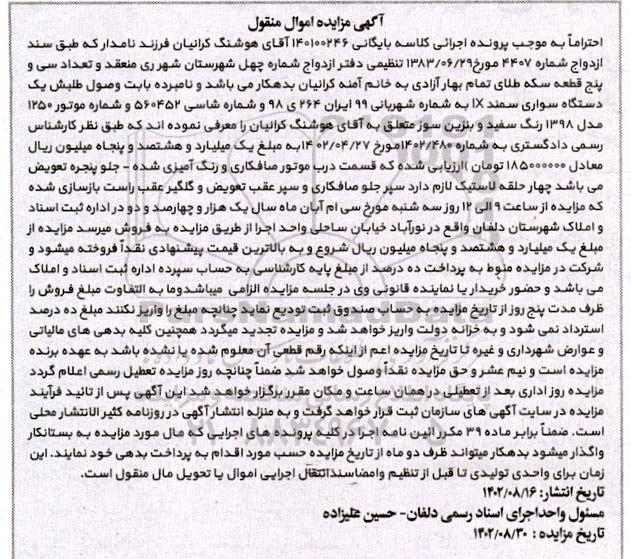 آگهی مزایده اموال منقول
احتراماً به موجب پرونده اجرائی کلاسه بایگانی ۱۴۰۱۰۰۲۴۶ آقای هوشنگ کرانیان فرزند نامدار که طبق سند
ازدواج شماره ۴۴۰۷ مورخ۱۳۸۳/۰۶/۲۹ تنظیمی دفتر ازدواج شماره چهل شهرستان شهر ری منعقد و تعداد سی و
پنج قطعه سکه طلای تمام بهار آزادی به خانم آمنه کرانیان بدهکار می باشد و نامبرده بابت وصول طلبش یک
دستگاه سواری سمند IX به شماره شهربانی ۹۹ ایران ۲۶۴ ی ۹۸ و شماره شاسی ۵۶۰۴۵۲ و شماره موتور ۱۲۵۰
مدل ۱۳۹۸ رنگ سفید و بنزین سوز متعلق به آقای هوشنگ کرانیان را معرفی نموده اند که طبق نظر کارشناس
رسمی دادگستری به شماره ۱۴۰۲/۴۸۰مورخ ۱۴۰۲/۰۴/۲۷به مبلغ یک میلیارد و هشتصد و پنجاه میلیون ریال
معادل ۱۸۵۰۰۰۰۰۰ تومان ارزیابی شده که قسمت درب موتور صافکاری و رنگ آمیزی شده - جلو پنجره تعویض
می باشد چهار حلقه لاستیک لازم دارد سپر جلو صافکاری و سپر عقب تعویض و گلگیر عقب راست بازسازی شده
که مزایده از ساعت ۹ الی ۱۲ روز سه شنبه مورخ سی ام آبان ماه سال یک هزار و چهارصد و دو در اداره ثبت اسناد
و املاک شهرستان دلفان واقع در نورآباد خیابان ساحلی واحد اجرا از طریق مزایده به فروش میرسد مزایده از
مبلغ یک میلیارد و هشتصد و پنجاه میلیون ریال شروع و به بالاترین قیمت پیشنهادی نقداً فروخته میشود و
شرکت در مزایده منوط به پرداخت ده درصد از مبلغ پایه کارشناسی به حساب سپرده اداره ثبت اسناد و املاک
می باشد و حضور خریدار یا نماینده قانونی وی در جلسه مزایده الزامی میباشدوما به التفاوت مبلغ فروش را
ظرف مدت پنج روز از تاریخ مزایده به حساب صندوق ثبت تودیع نماید چنانچه مبلغ را واریز نکنند مبلغ ده درصد
استرداد نمی شود و به خزانه دولت واریز خواهد شد و مزایده تجدید میگردد همچنین کلیه بدهی های مالیاتی
و عوارض شهرداری و غیره تا تاریخ مزایده اعم از اینکه رقم قطعی آن معلوم شده یا نشده باشد به عهده برنده
مزایده است و نیم عشر و حق مزایده نقداً وصول خواهد شد ضمناً چنانچه روز مزایده تعطیل رسمی اعلام گردد
مزایده روز اداری بعد از تعطیل در همان ساعت و مکان مقرر برگزار خواهد شد این آگهی پس از تائید فرآیند
مزایده در سایت آگهی های سازمان ثبت قرار خواهد گرفت و به منزله انتشار آگهی در روزنامه کثیر الانتشار محلی
است. ضمناً برابر ماده ۳۹ مکرر آئین نامه اجرا در کلیه پرونده های اجرایی که مال مورد مزایده به بستانکار
واگذار میشود بدهکار میتواند ظرف دو ماه از تاریخ مزایده حسب مورد اقدام به پرداخت بدهی خود نمایند. این
زمان برای واحدی تولیدی تا قبل از تنظیم وامضاسندانتقال اجرایی اموال یا تحویل مال منقول است.
تاریخ انتشار: ۱۴۰۲/۰۸/۱۶
مسئول واحداجرای اسناد رسمی دلفان- حسین علیزاده
تاریخ مزایده : ۱۴۰۲/۰۸/۳۰